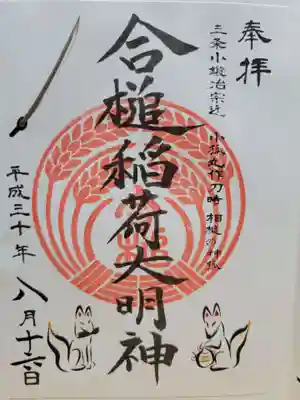 奉拝
三条小鍛冶宗近 小狐丸作刀時 相槌の神様
合槌稲荷大明神
平成三十年 八月十六日